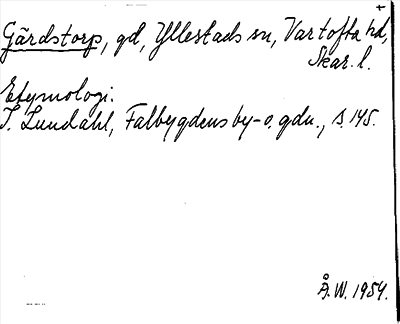 Gärdstorp, gd, Yllestads sn, Vartofta hd,
Skar. l.
Etymologi.
I. Lundahl, Falbygdens by- o. gdn., s. 145.
Å. W. 1954.